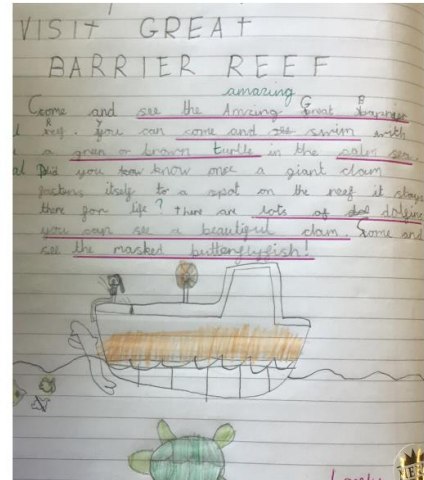 VISIT GREAT
BARRIER REEF
amazing
Come and see the Amzing Great Barrier
reef. You can come and see swim with
a gren or brown turtle in the calm sea
Did you know once a giant clam
fastens itself to a spot on the reef it stays
there for life? There are lots of dolfins
you can see a beautiful clam. Come and
see the masked butterflyfish!
Lovely